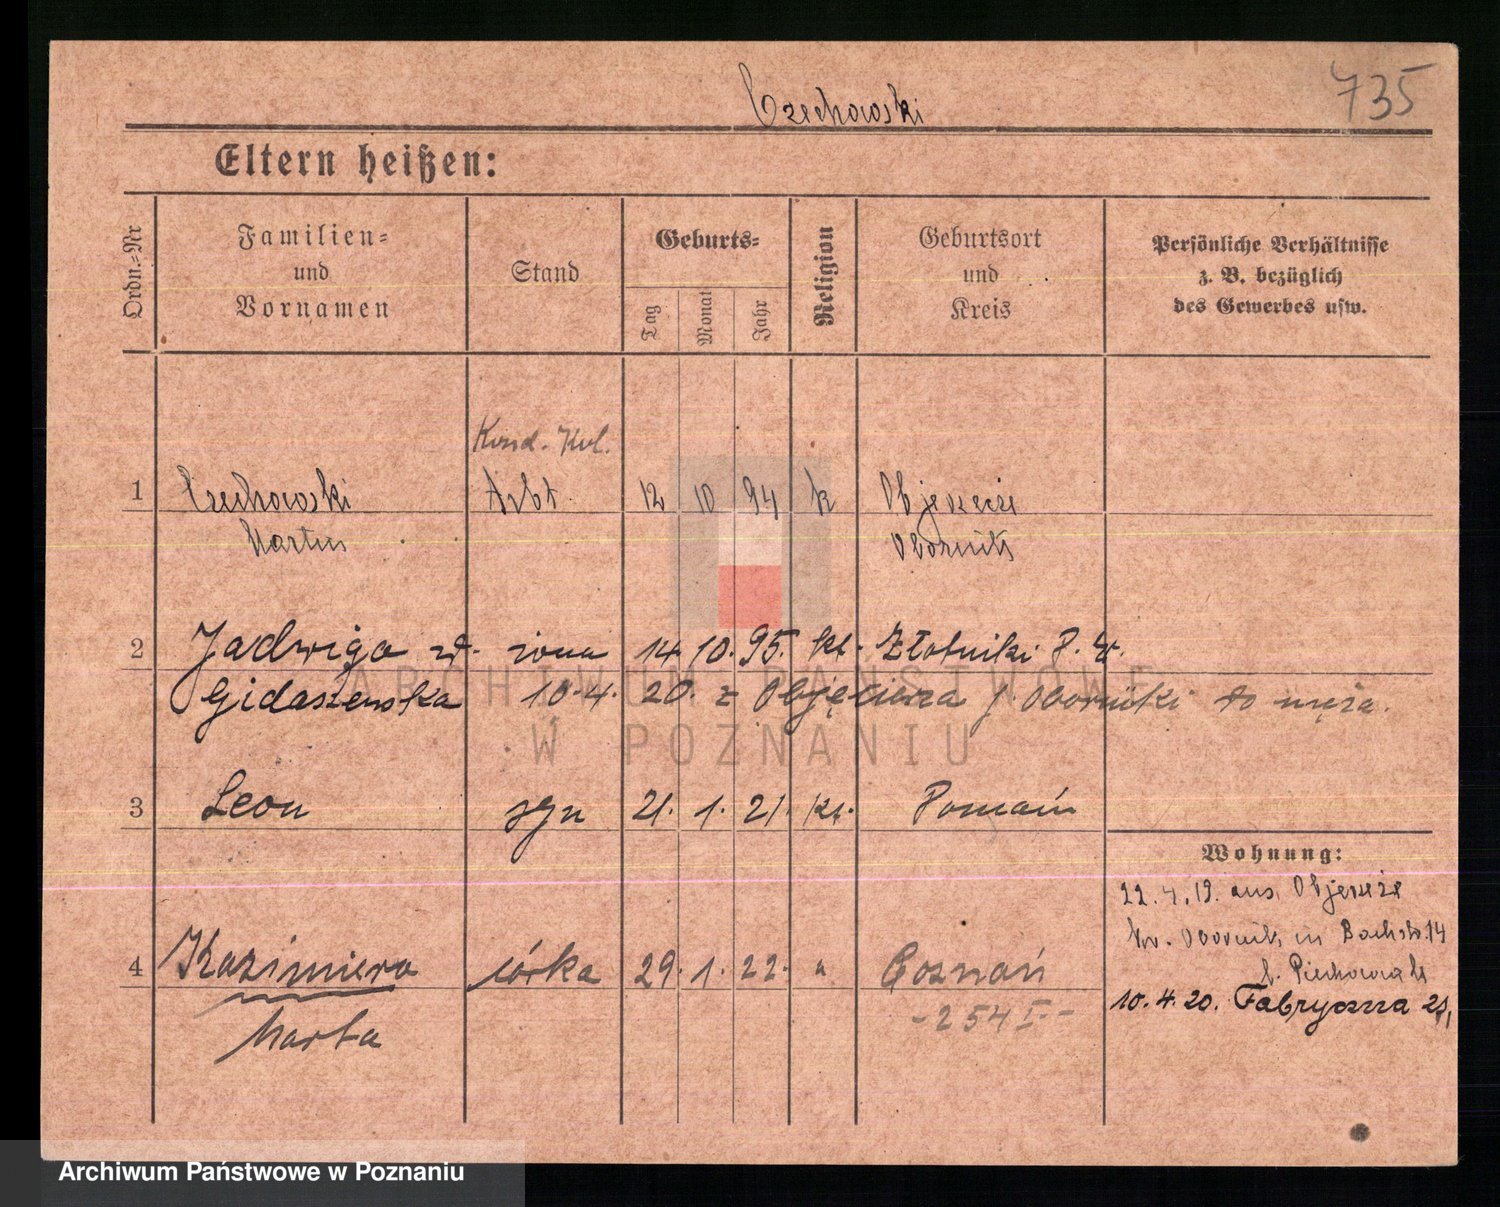 735
Czechowski
Eltern heißen:
Ordn.=Nr
Familien=
und
Vornamen
Stand
Geburts=
Tag
Monat
Jahr
Religion
Geburtsort
und
Kreis
Persönliche Verhältnisse
z. B. bezüglich
des Gewerbes usw.
1 Czechowski Arbt. 12 10 94 k Objezeże
Martin Obornik
2 Jadwiga z d. żona 14. 10. 95. kt. Złotniki P. W.
Gidaszewska 10.4. 20. z Objezierza p. Oborniki do męża.
3 Leon syn 21. 1. 21. kt. Poznań
Wohnung:
22.4.19. aus Objezeże
Kr. Obornik in Bachstr. 14
b. Piechowiak
4 Kazimiera córka 29. 1. 22. " Poznań
10.4.20. Fabryczna 21,
Marta
- 254 I -
ARCHIWUM PAŃSTWOWE
W POZNANIU
Archiwum Państwowe w Poznaniu